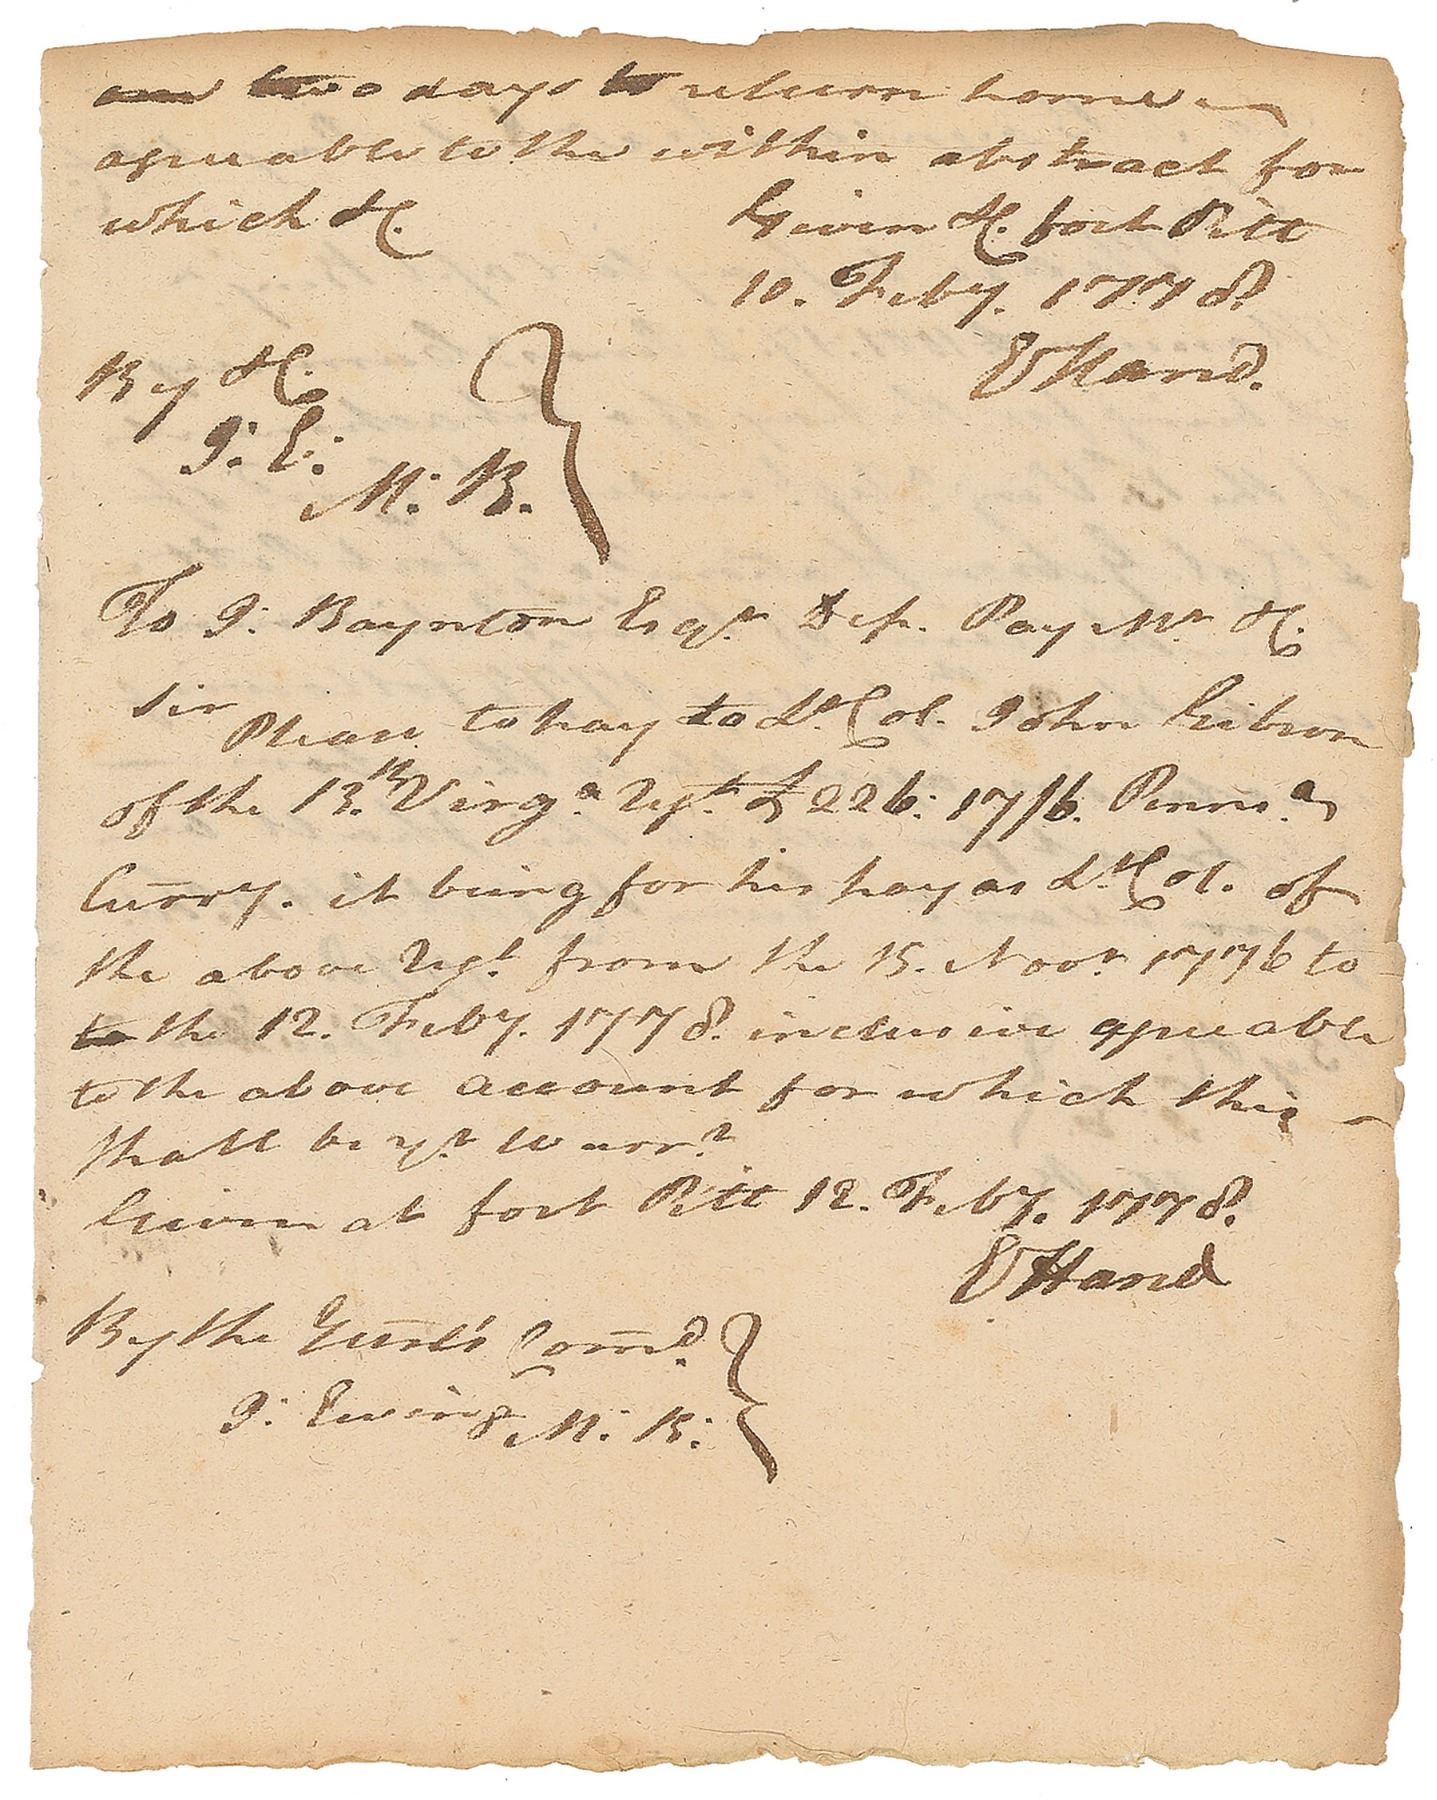 and two days to return home
agreeable to the within abstract for
which &c. Given &c. fort Pitt
10. Feby. 1778.
By &c. E Hand.
J: E:
M: B.
To J: Baynton Esqr. Dep. Pay Mr. &c.
Sir
Please to pay to Lt. Col. John Gibson
of the 13.th Virga. Regt. £226: 17/6. Pennsa.
Curry. it being for his pay as Lt. Col. of
the above Regt. from the 15. Novr. 1776 to
to the 12. Feby. 1778. inclusive agreeable
to the above account for which this
shall be yr. Warrt.
Given at fort Pitt 12. Feby. 1778.
E Hand
By the Genrl's Comd.
J: Ewing M: B: